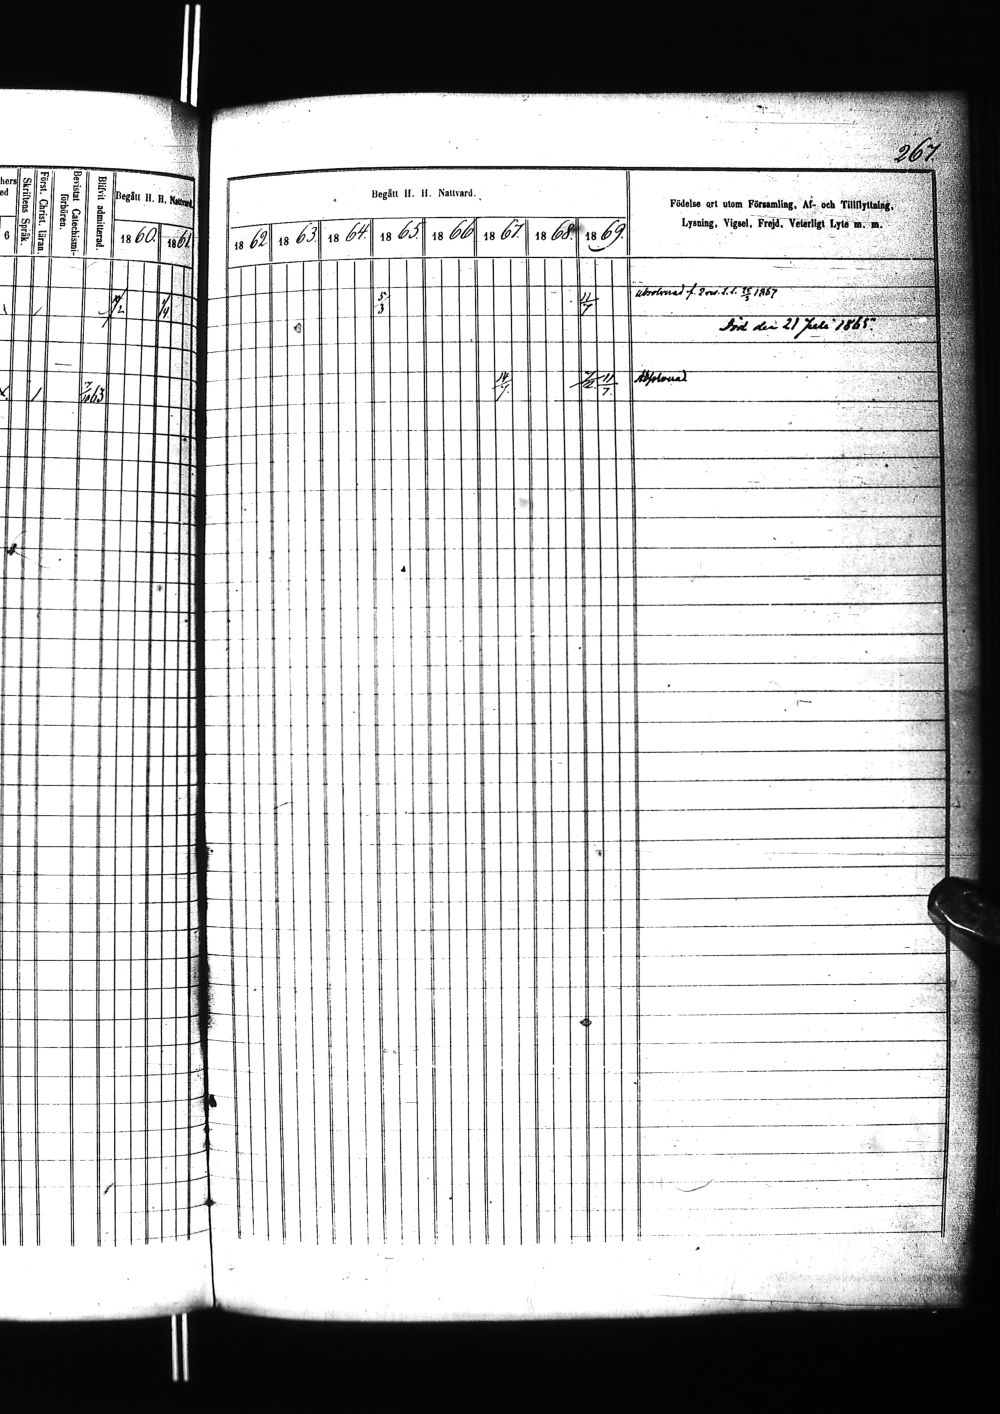 267
hers
ed
6
Skriftens Språk.
Först. Christ. läran.
Bevistat Catechismi-
förhören.
Blifvit admitterad.
Begått H. H. Nattvard.
1860. 1861.
Begått H. H. Nattvard.
1862 1863. 1864. 1865. 1866 1867. 1868. 1869.
Födelse ort utom Församling, Af- och Tillflyttning,
Lysning, Vigsel, Frejd, Veterligt Lyte m. m.
5/3 11/7 1867
Död den 21 Juli 1865.
63 14/7 11/7. Absolverad